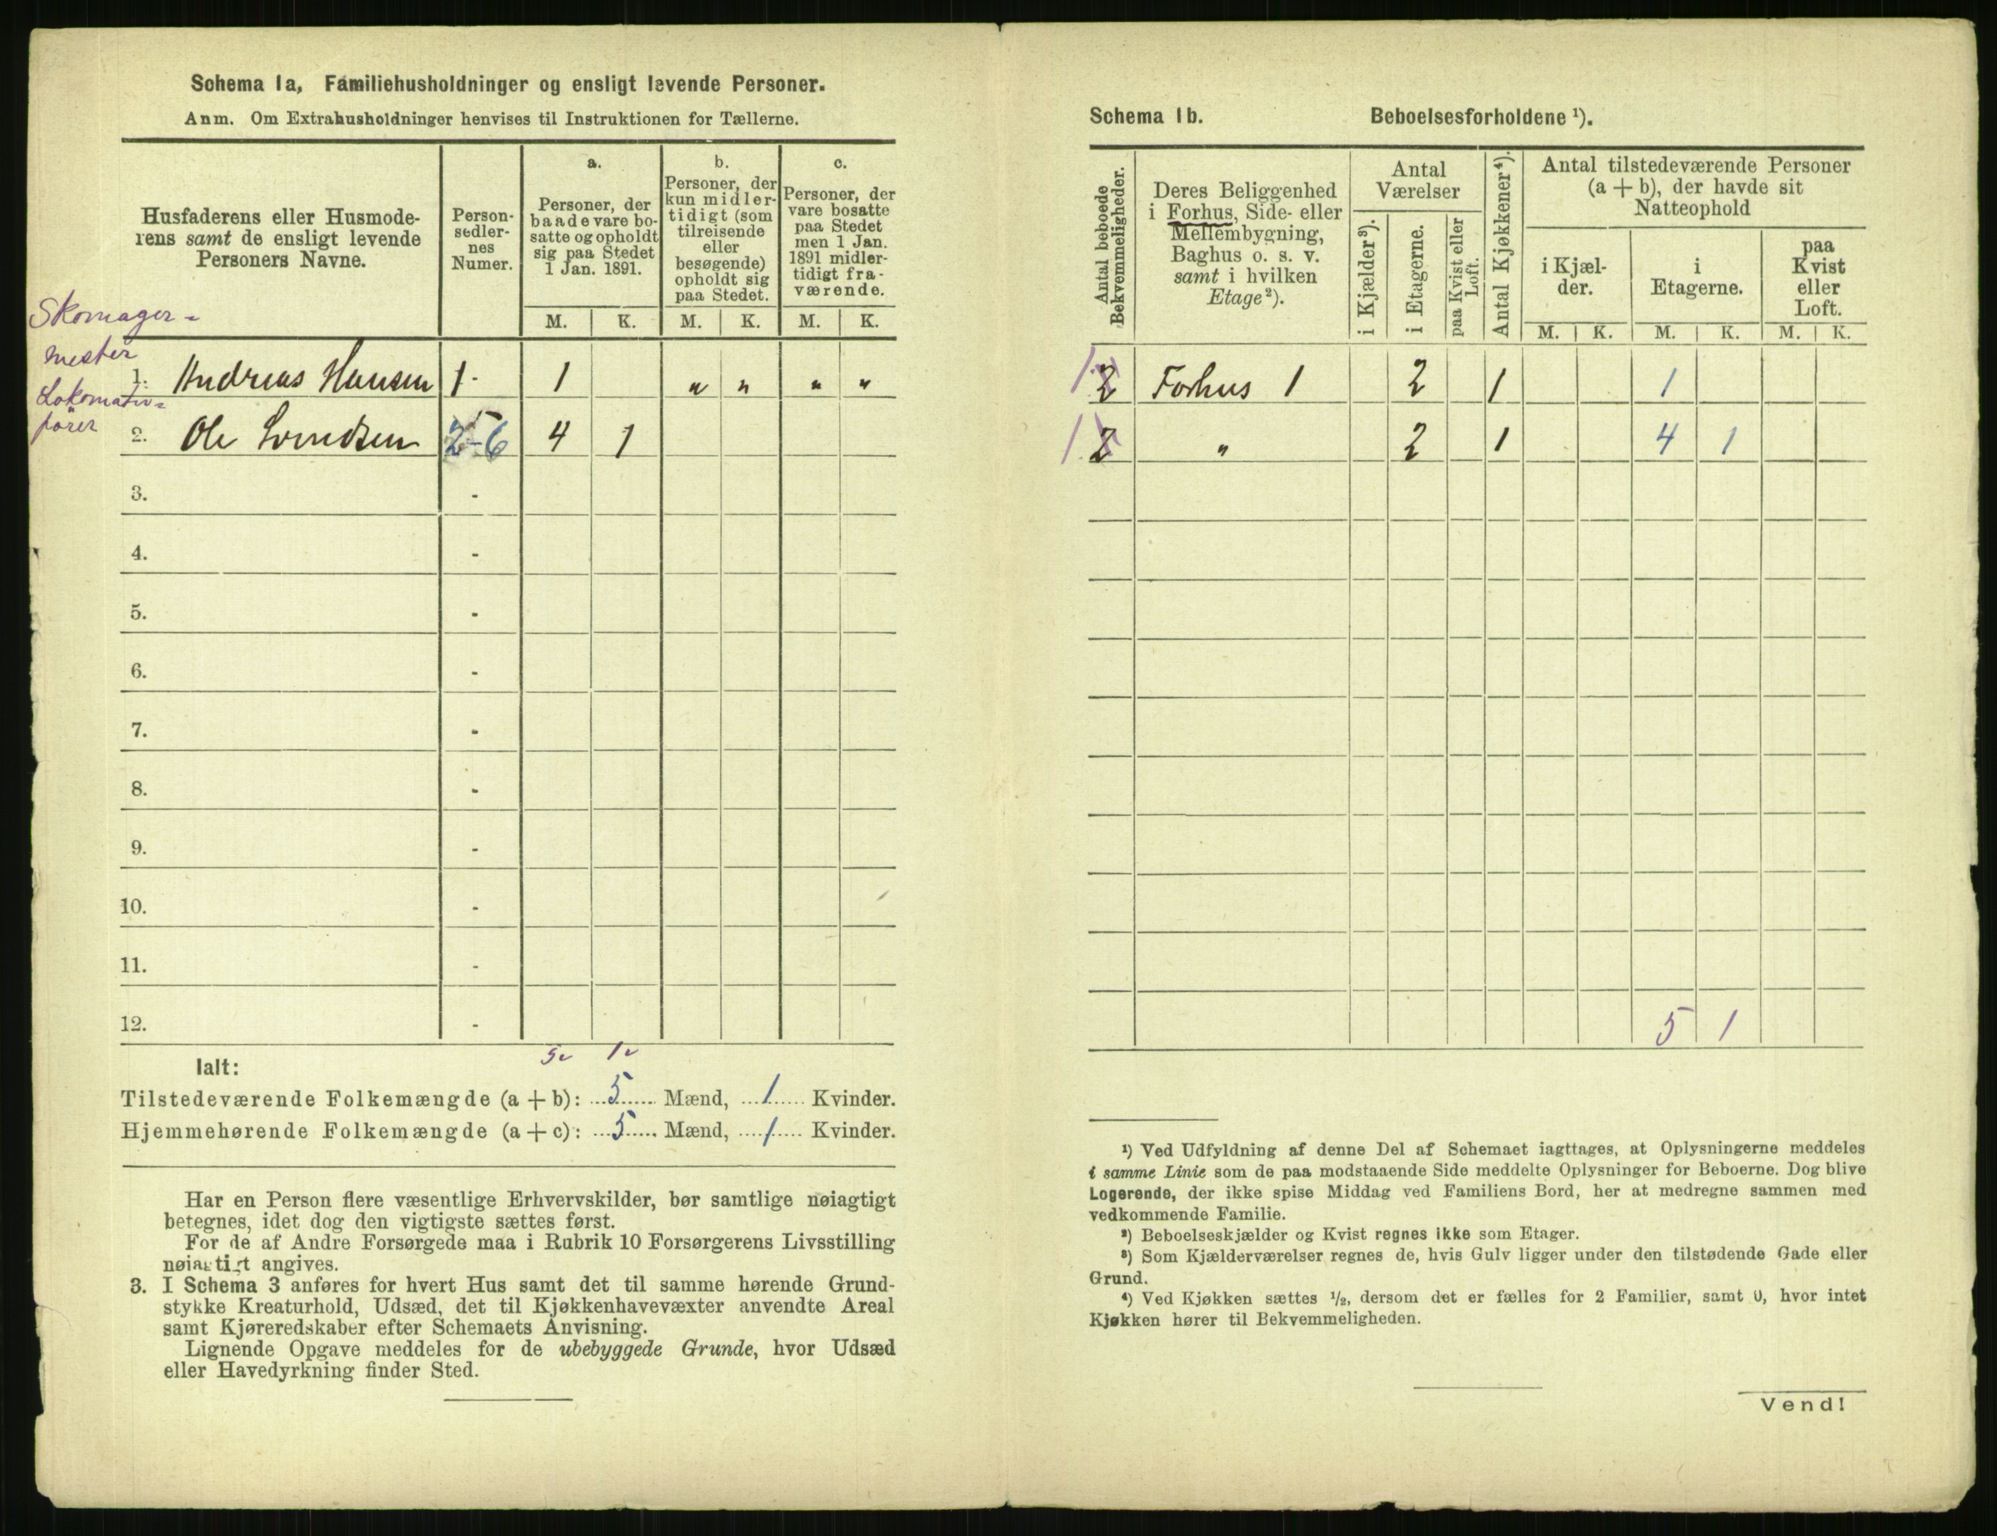 Schema 1a, Familiehusholdninger og ensligt levende Personer.
Anm. Om Extrahusholdninger henvises til Instruktionen for Tællerne.
Husfaderens eller Husmode-
rens samt de ensligt levende
Personers Navne.
Person-
sedler-
nes
Numer.
a.
Personer, der
baade vare bo-
satte og opholdt
sig paa Stedet
1 Jan. 1891.
b.
Personer, der
kun midler-
tidigt (som
tilreisende
eller
besøgende)
opholdt sig
paa Stedet.
c.
Personer, der
vare bosatte
paa Stedet
men 1 Jan.
1891 midler-
tidigt fra-
værende.
M. K. M. K. M. K.
Skomager-
mester
1. Andreas Hansen 1 - 1 „ „ „ „
Lokomotiv-
fører
2. Ole Svendsen 2-6 4 1
3. -
4. -
5. -
6. -
7. -
8. -
9. -
10. -
11. -
12. -
5 1
Ialt:
Tilstedeværende Folkemængde (a + b): 5 Mænd, 1 Kvinder.
Hjemmehørende Folkemængde (a + c): 5 Mænd, 1 Kvinder.
Har en Person flere væsentlige Erhvervskilder, bør samtlige nøiagtigt
betegnes, idet dog den vigtigste sættes først.
For de af Andre Forsørgede maa i Rubrik 10 Forsørgerens Livsstilling
nøiagtigt angives.
3. I Schema 3 anføres for hvert Hus samt det til samme hørende Grund-
stykke Kreaturhold, Udsæd, det til Kjøkkenhavevæxter anvendte Areal
samt Kjøreredskaber efter Schemaets Anvisning.
Lignende Opgave meddeles for de ubebyggede Grunde, hvor Udsæd
eller Havedyrkning finder Sted.
Schema 1b. Beboelsesforholdene ¹).
Antal beboede
Bekvemmeligheder.
Deres Beliggenhed
i Forhus, Side- eller
Mellembygning,
Baghus o. s. v.
samt i hvilken
Etage²).
Antal
Værelser
i Kjælder³).
i Etagerne.
paa Kvist eller
Loft.
Antal Kjøkkener⁴).
Antal tilstedeværende Personer
(a + b), der havde sit
Natteophold
i Kjæl-
der.
i
Etagerne.
paa
Kvist
eller
Loft.
M. K. M. K. M. K.
1 2 Forhus 1 2 1 1
1 2 „ 2 1 4 1
5 1
¹) Ved Udfyldning af denne Del af Schemaet iagttages, at Oplysningerne meddeles
i samme Linie som de paa modstaaende Side meddelte Oplysninger for Beboerne. Dog blive
Logerende, der ikke spise Middag ved Familiens Bord, her at medregne sammen med
vedkommende Familie.
²) Beboelseskjælder og Kvist regnes ikke som Etager.
³) Som Kjælderværelser regnes de, hvis Gulv ligger under den tilstødende Gade eller
Grund.
⁴) Ved Kjøkken sættes ½, dersom det er fælles for 2 Familier, samt 0, hvor intet
Kjøkken hører til Bekvemmeligheden.
Vend!